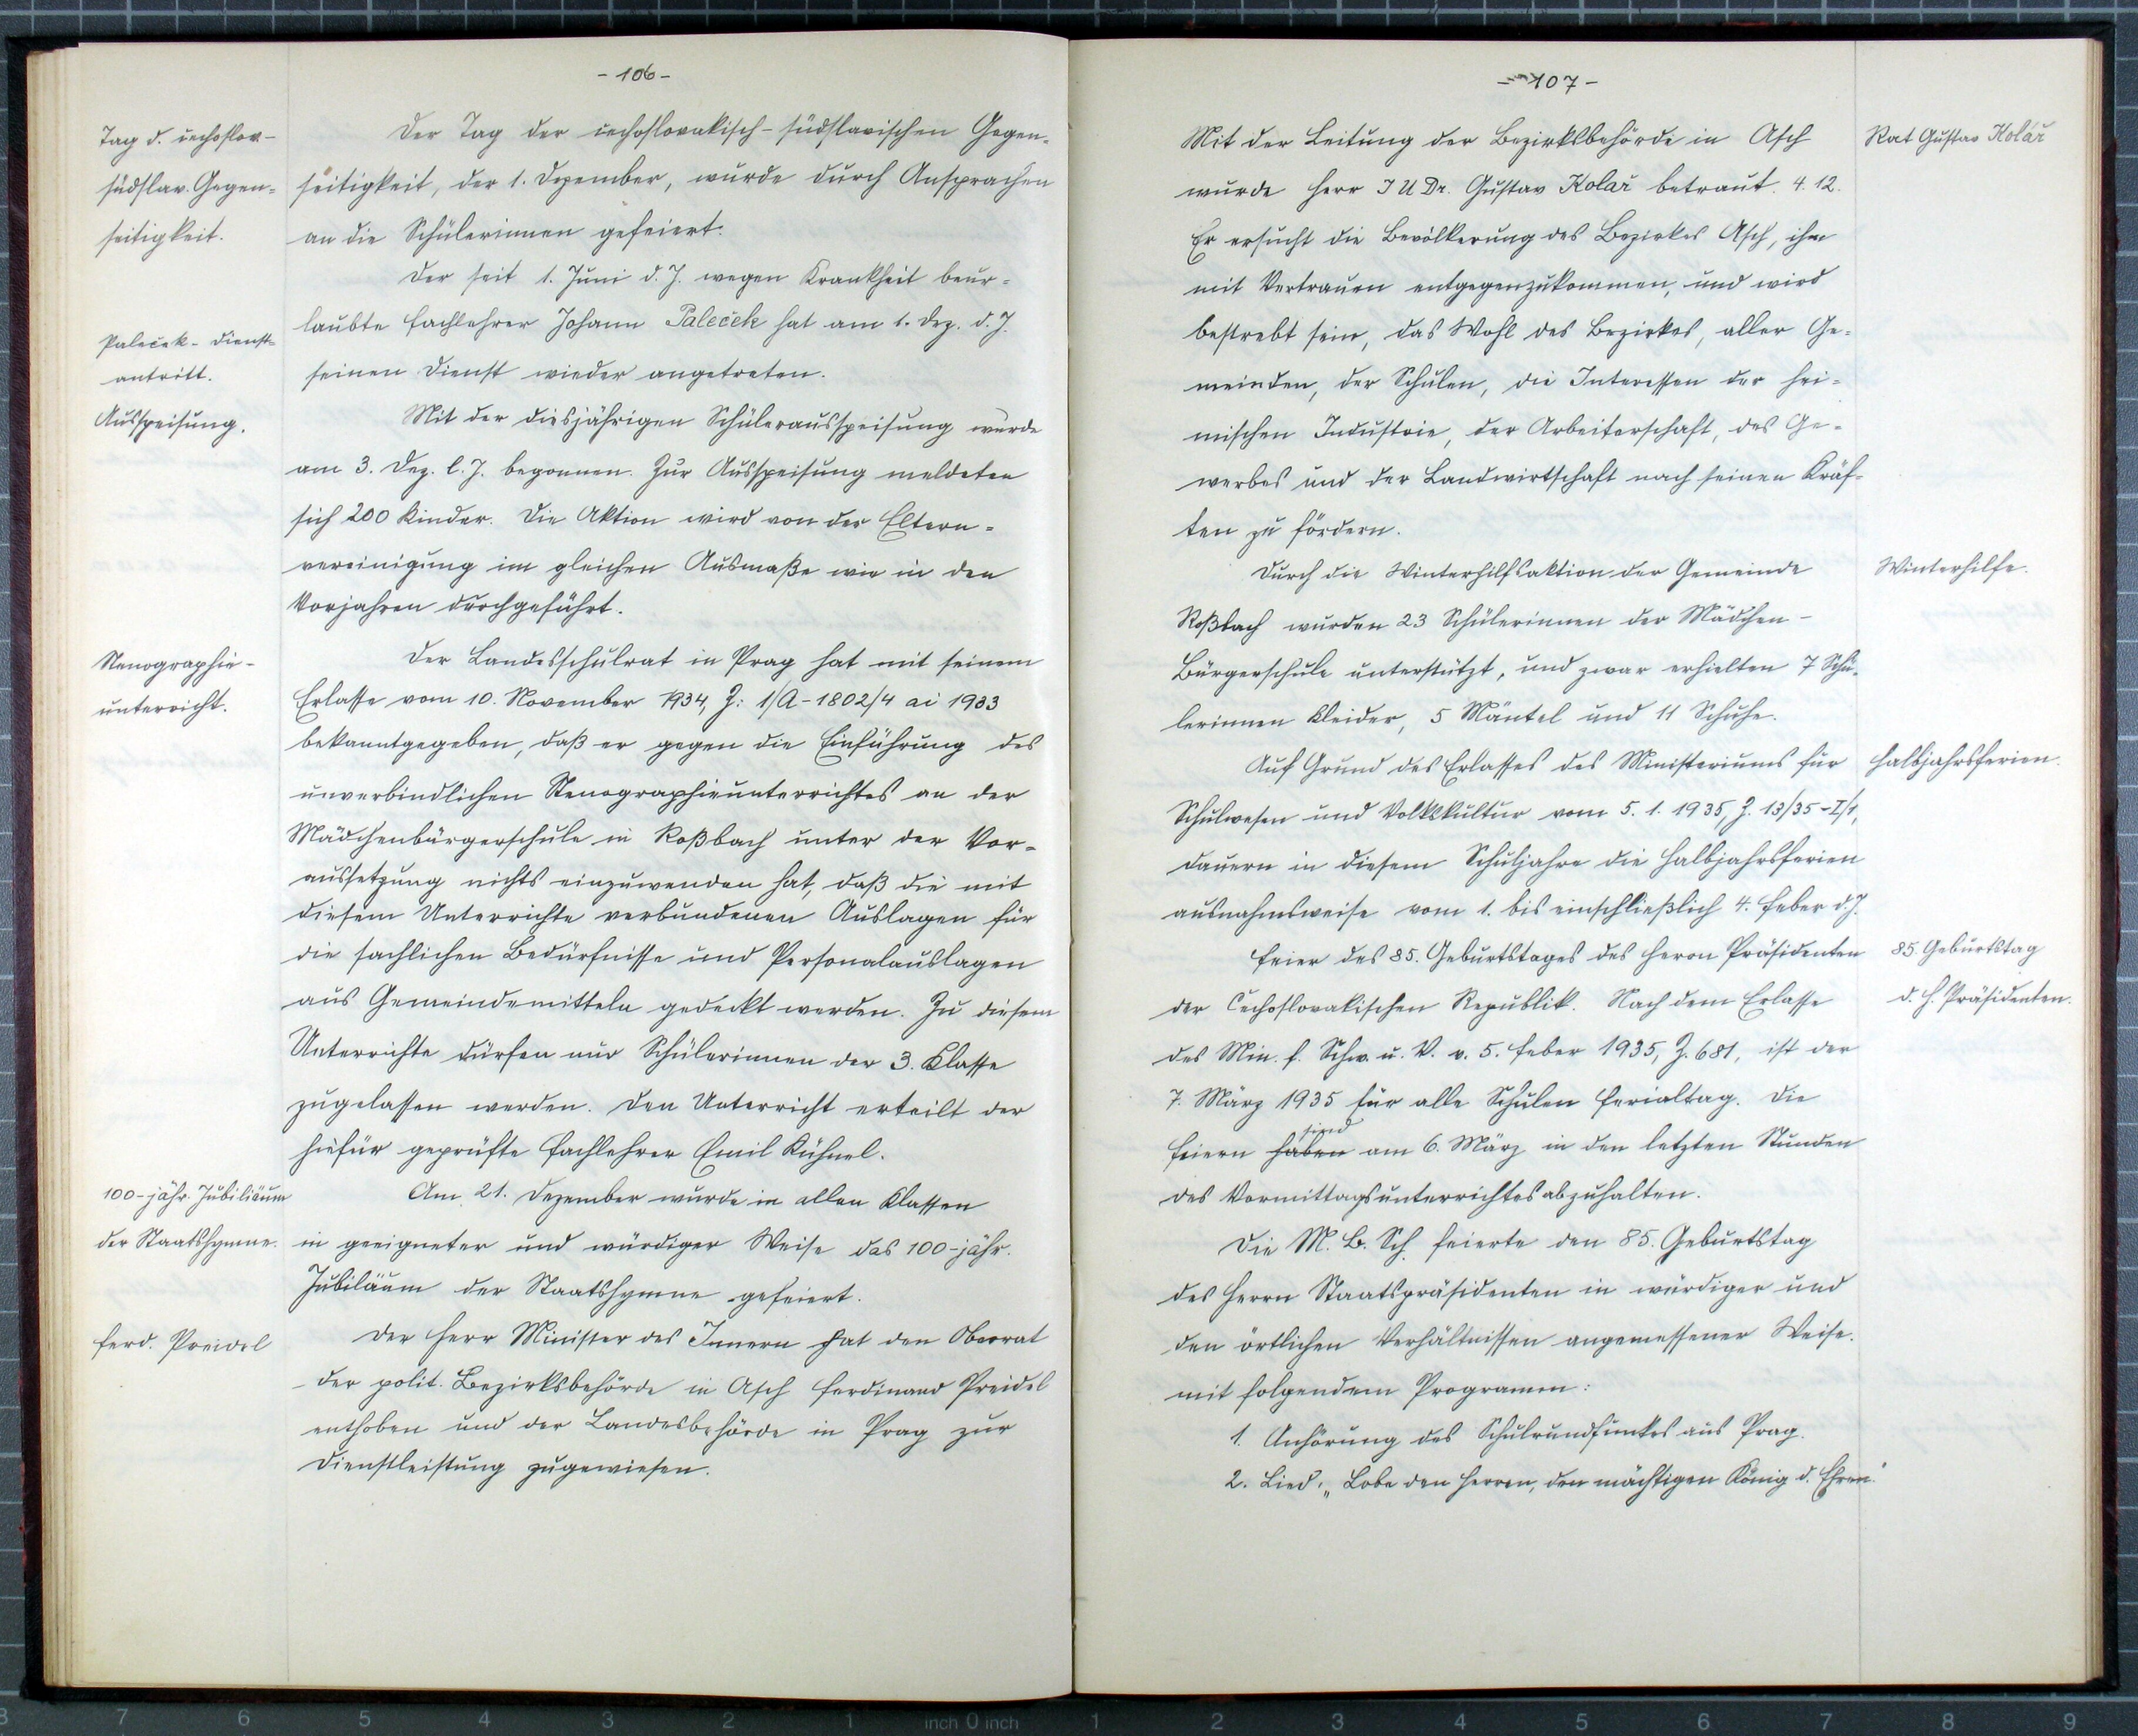 - 106 -
Tag d. čechoslov.-
südslav. Gegen-
seitigkeit.
Der Tag der čechoslovakisch-südslavischen Gegen-
seitigkeit, der 1. Dezember, wurde durch Ansprachen
an die Schülerinnen gefeiert.
Der seit 1. Juni d. J. wegen Krankheit beur-
Paleček-Dienst-
antritt.
laubte Fachlehrer Johann Paleček hat am 1. Dez. d. J.
seinen Dienst wieder angetreten.
Ausspeisung.
Mit der diesjährigen Schülerausspeisung wurde
am 3. Dez. l. J. begonnen. Zur Ausspeisung meldeten
sich 200 Kinder. Die Aktion wird von der Eltern-
vereinigung im gleichen Ausmaße wie in den
Vorjahren durchgeführt.
Stenographie-
unterricht.
Der Landesschulrat in Prag hat mit seinem
Erlasse vom 10. November 1934, Z: 1/A-1802/4 ai 1933
bekanntgegeben, daß er gegen die Einführung des
unverbindlichen Stenographieunterrichtes an der
Mädchenbürgerschule in Roßbach unter der Vor-
aussetzung nichts einzuwenden hat, daß die mit
diesem Unterrichte verbundenen Auslagen für
die sachlichen Bedürfnisse und Personalauslagen
aus Gemeindemitteln gedeckt werden. Zu diesem
Unterrichte dürfen nur Schülerinnen der 3. Klasse
zugelassen werden. Den Unterricht erteilt der
hiefür geprüfte Fachlehrer Emil Kühnel.
100-jähr. Jubiläum
der Staatshymne.
Am 21. Dezember wurde in allen Klassen
in geeigneter und würdiger Weise das 100-jähr.
Jubiläum der Staatshymne gefeiert.
Ferd. Preidel
Der Herr Minister des Innern hat den Oberrat
der polit. Bezirksbehörde in Asch Ferdinand Preidel
enthoben und der Landesbehörde in Prag zur
Dienstleistung zugewiesen.
- 107 -
Rat Gustav Kolář
Mit der Leitung der Bezirksbehörde in Asch
wurde Herr J U Dr. Gustav Kolař betraut. 4. 12.
Er ersucht die Bevölkerung des Bezirkes Asch, ihm
mit Vertrauen entgegenzukommen, und wird
bestrebt sein, das Wohl des Bezirkes, aller Ge-
meinden, der Schulen, die Interessen der hei-
mischen Industrie, der Arbeiterschaft, des Ge-
werbes und der Landwirtschaft nach seinen Kräf-
ten zu fördern.
Winterhilfe.
Durch die Winterhilfsaktion der Gemeinde
Roßbach wurden 23 Schülerinnen der Mädchen-
Bürgerschule unterstützt, und zwar erhielten 7 Schü-
lerinnen Kleider, 5 Mäntel und 11 Schuhe.
Halbjahrsferien.
Auf Grund des Erlasses des Ministeriums für
Schulwesen und Volkskultur vom 5. 1. 1935, Z. 13/35-I/1,
dauern in diesem Schuljahre die Halbjahrsferien
ausnahmsweise vom 1. bis einschließlich 4. Feber d. J.
85. Geburtstag
d. H. Präsidenten.
Feier des 85. Geburtstages des Herrn Präsidenten
der Čechoslovakischen Republik. Nach dem Erlasse
des Min. f. Schw. u. V. v. 5. Feber 1935, Z. 681, ist der
7. März 1935 für alle Schulen Ferialtag. Die
sind
Feiern haben am 6. März in den letzten Stunden
des Vormittagsunterrichtes abzuhalten.
Die M. B. Sch. feierte den 85. Geburtstag
des Herrn Staatspräsidenten in würdiger und
den örtlichen Verhältnissen angemessener Weise.
mit folgendem Programm:
1. Anhörung des Schulrundfunkes aus Prag.
2. Lied: „Lobe den Herren, den mächtigen König d. Ehren."
3 7 6 5 4 3 2 1 inch 0 inch 1 2 3 4 5 6 7 8 9